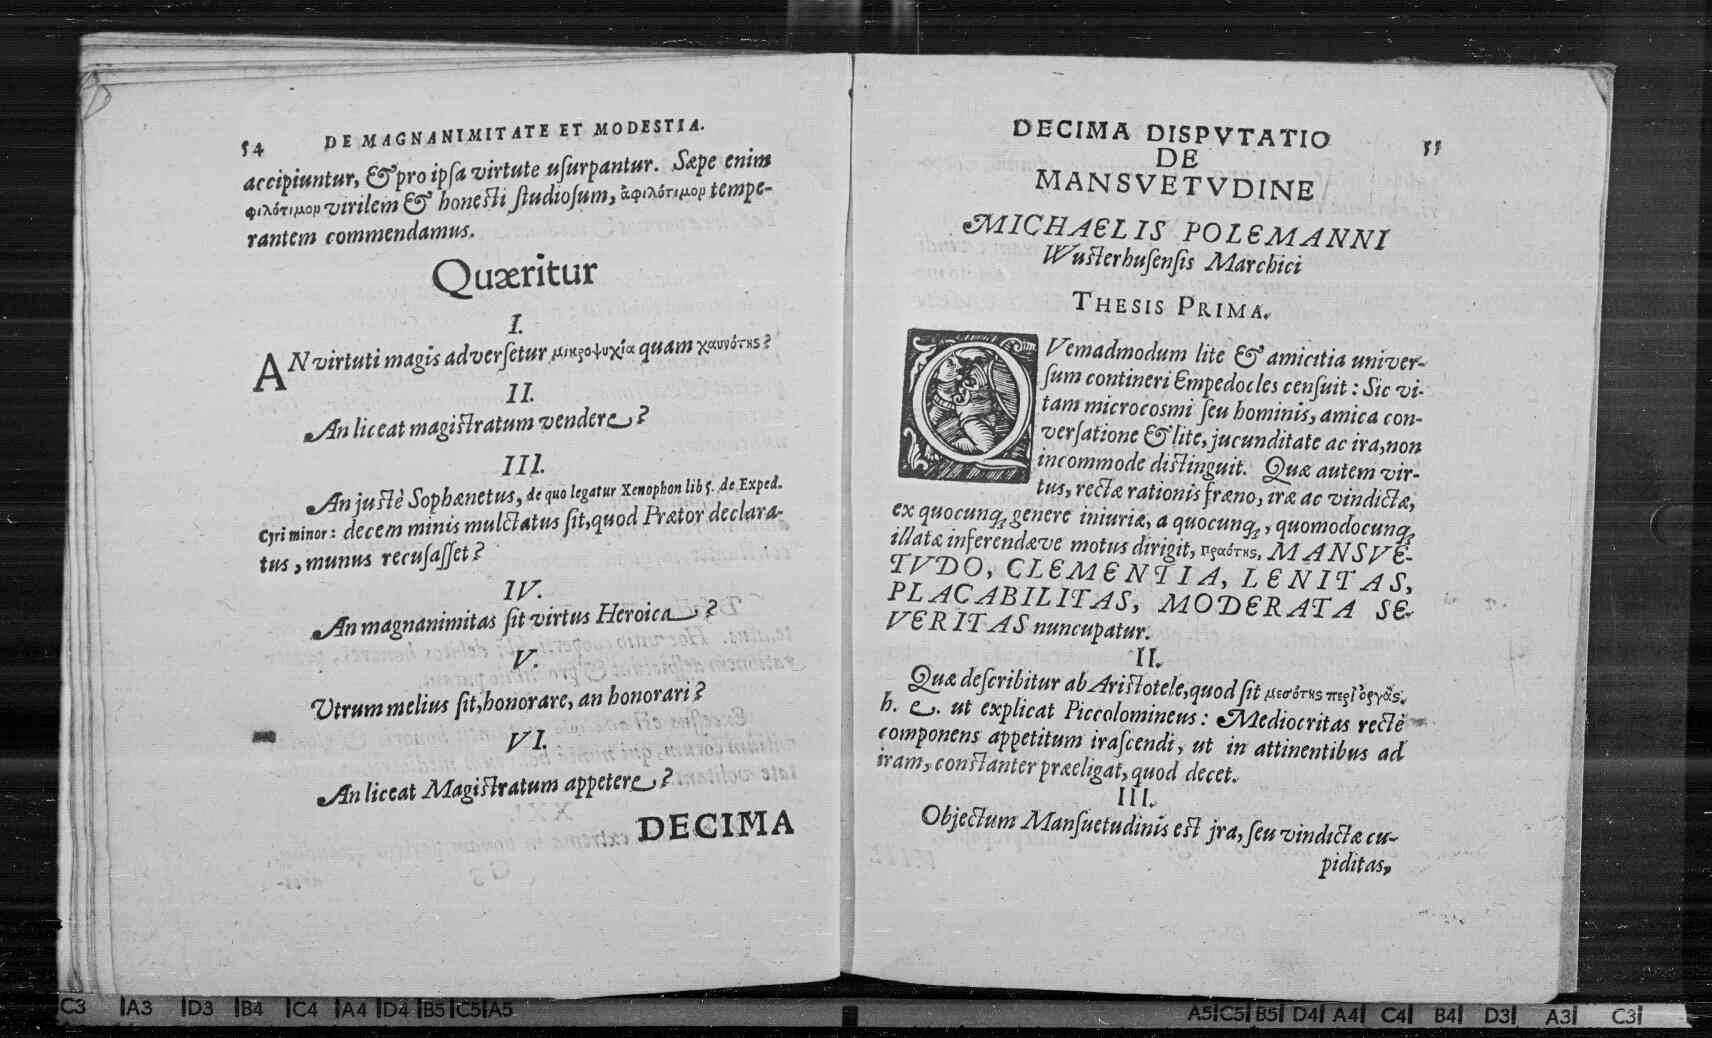 54 DE MAGNANIMITATE ET MODESTIA.
accipiuntur, & pro ipsa virtute usurpantur. Sæpe enim
φιλότιμον virilem & honesti studiosum, ἀφιλότιμον tempe-
rantem commendamus.
Quæritur
I.
AN virtuti magis adversetur μικροψυχία quam χαυνότης?
II.
An liceat magistratum vendere?
III.
An justè Sophænetus, de quo legatur Xenophon lib 5. de Exped.
Cyri minor: decem minis mulctatus sit, quod Prætor declara-
tus, munus recusasset?
IV.
An magnanimitas sit virtus Heroica?
V.
Utrum melius sit, honorare, an honorari?
VI.
An liceat Magistratum appetere?
DECIMA
DECIMA DISPVTATIO 55
DE
MANSVETVDINE
MICHAELIS POLEMANNI
Wusterhusensis Marchici
THESIS PRIMA.
QVemadmodum lite & amicitia univer-
sum contineri Empedocles censuit: Sic vi-
tam microcosmi seu hominis, amica con-
versatione & lite, jucunditate ac ira, non
incommode distinguit. Quæ autem vir-
tus, rectæ rationis fræno, iræ ac vindictæ,
ex quocunq; genere iniuriæ, a quocunq;, quomodocunq;
illatæ inferendæve motus dirigit, πραότης, MANSVE-
TVDO, CLEMENTIA, LENITAS,
PLACABILITAS, MODERATA SE-
VERITAS nuncupatur.
II.
Quæ describitur ab Aristotele, quod sit μεσότης περὶ ὀργὰς.
h. e. ut explicat Piccolomineus: Mediocritas rectè
componens appetitum irascendi, ut in attinentibus ad
iram, constanter præeligat, quod decet.
III.
Objectum Mansuetudinis est jra, seu vindictæ cu-
piditas,
C3 A3 D3 B4 C4 A4 D4 B5 C5 A5
A5 C5 B5 D4 A4 C4 B4 D3 A3 C3